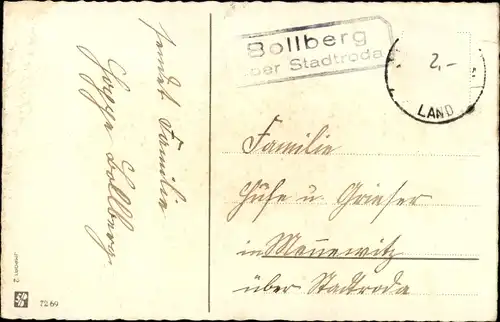 sendet Familie
Bollberg
Bollberg
über Stadtroda
2,-
LAND
Familie
Hüfe u. Grieser
in Mennewitz
über Stadtroda
7269